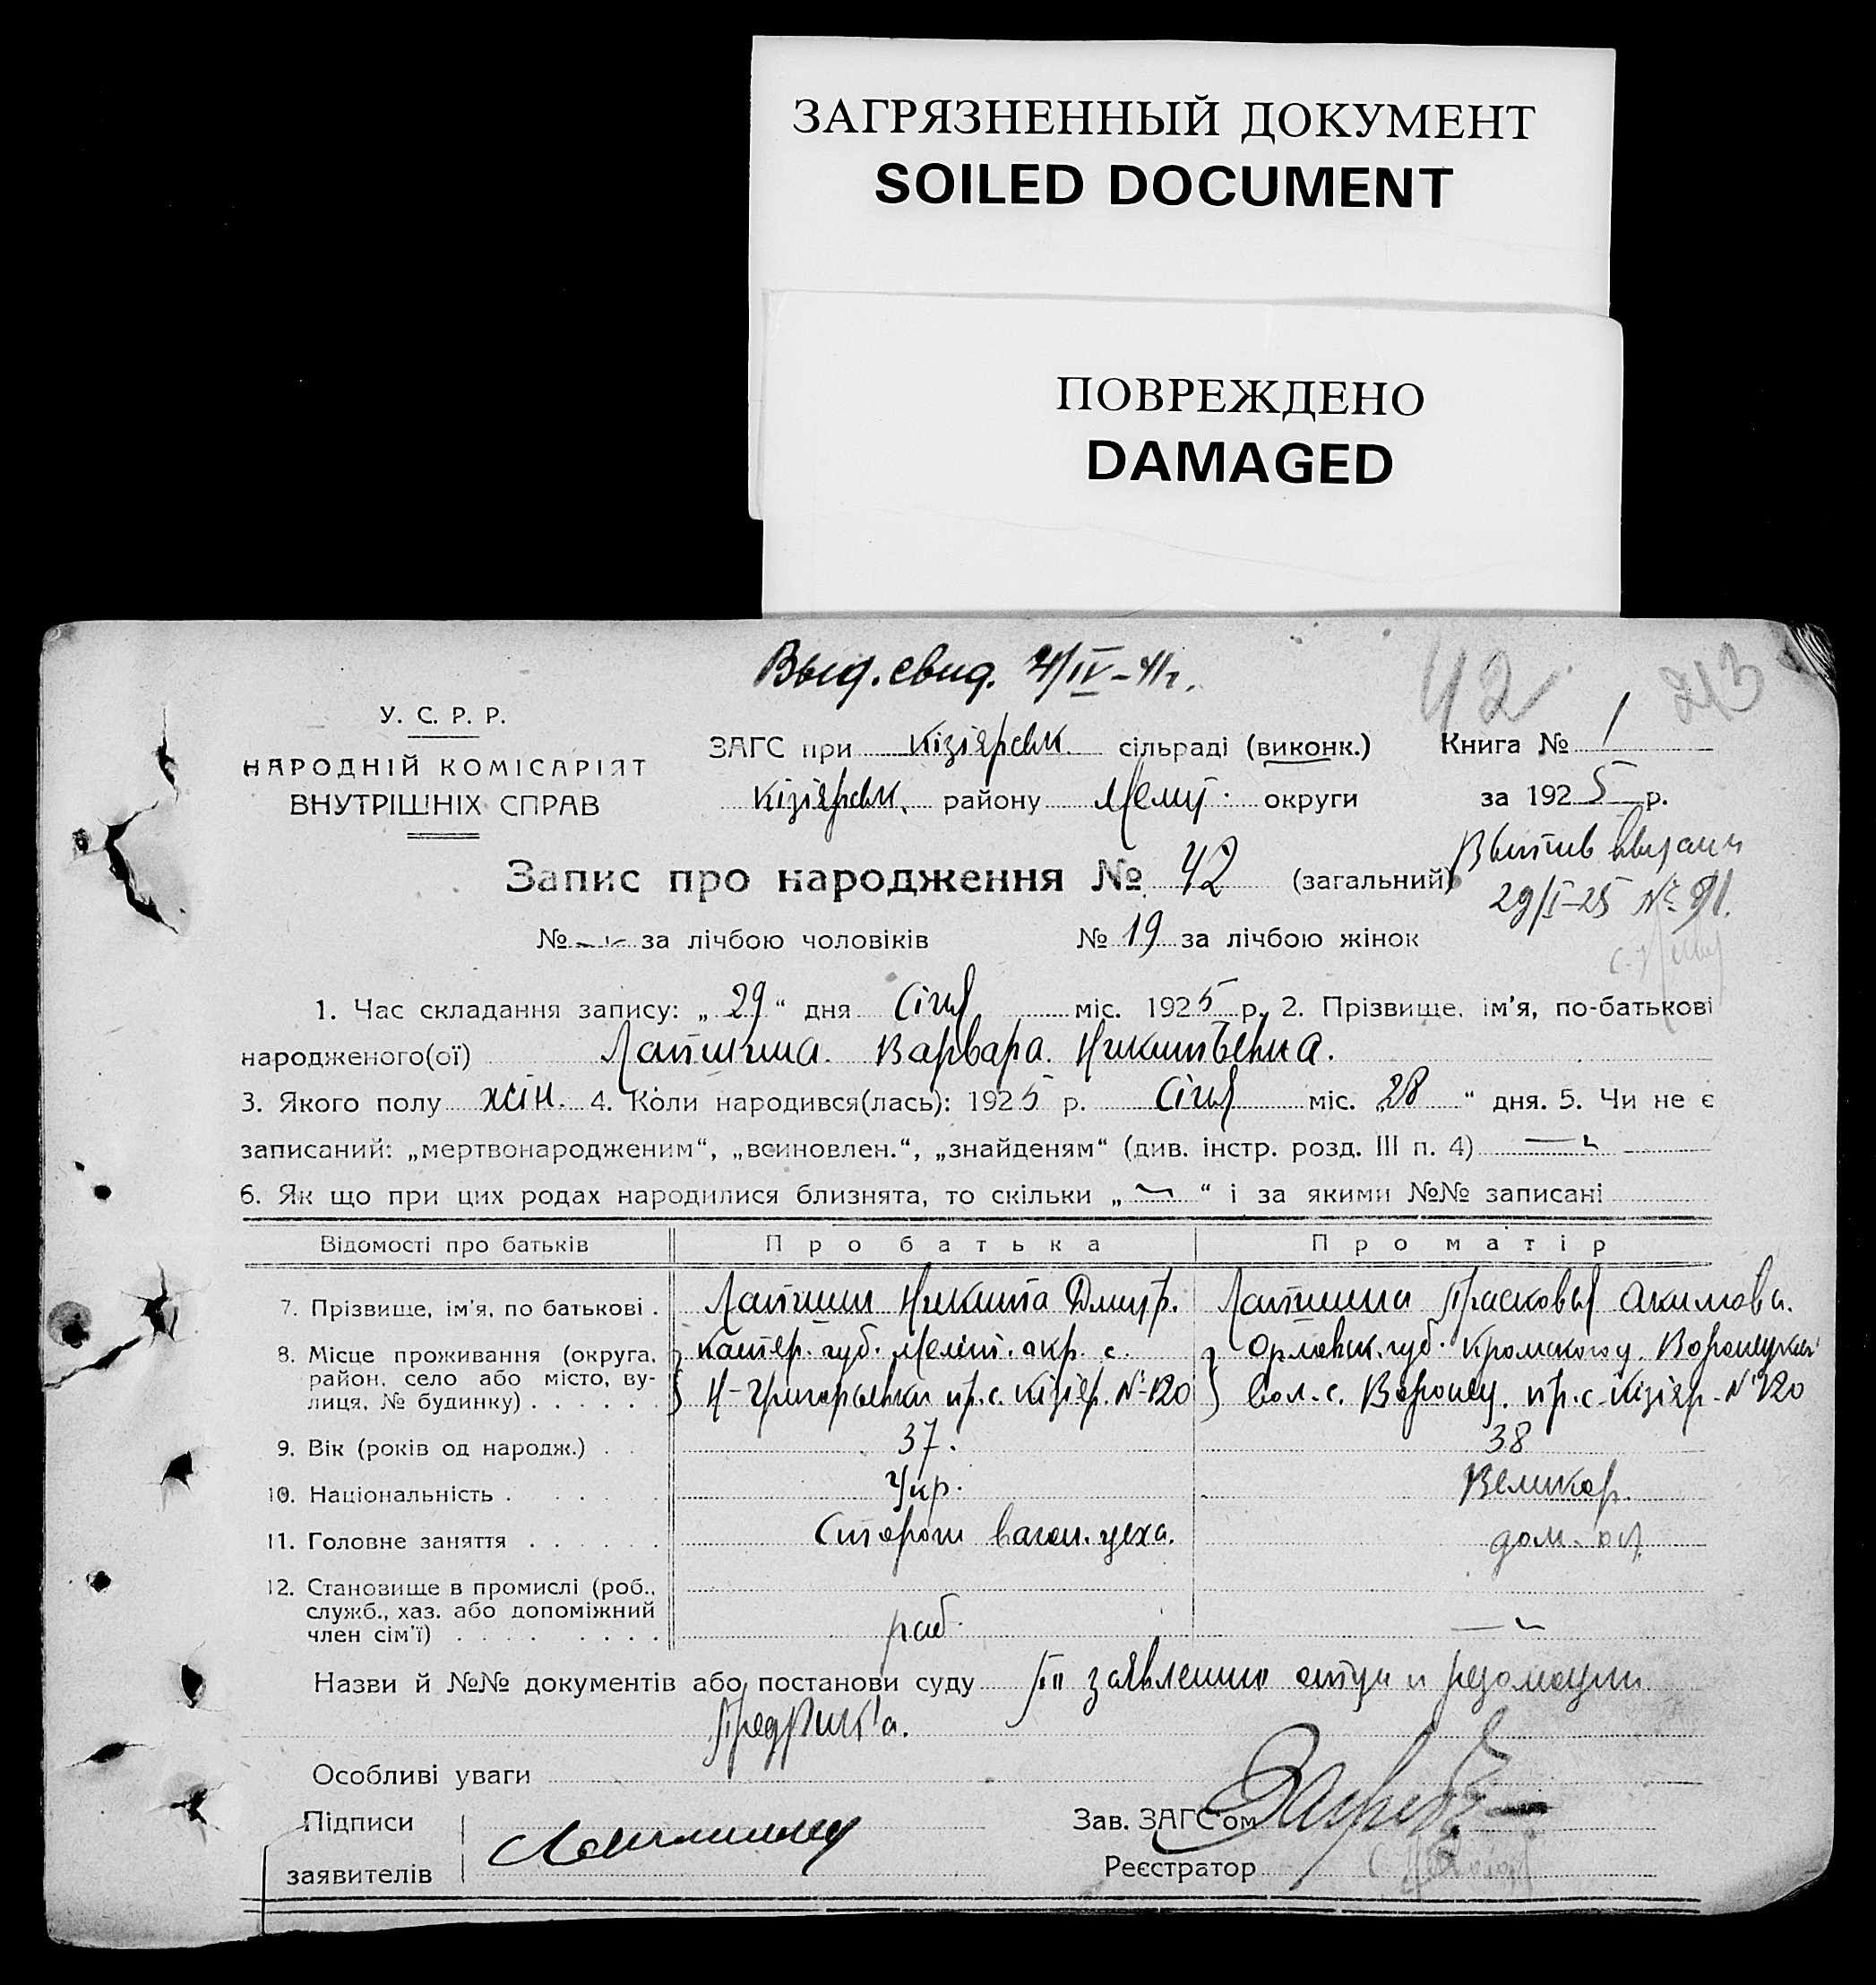 ЗАГРЯЗНЕННЫЙ ДОКУМЕНТ
SOILED DOCUMENT
ПОВРЕЖДЕНО
DAMAGED
Выд. свид. 4/IV-41г.
42 213
У. С. Р. Р.
НАРОДНІЙ КОМІСАРІЯТ
ВНУТРІШНІХ СПРАВ
ЗАГС при Кізіярськ. сільраді (виконк.) Книга № 1
Кізіярськ. району Меліт. округи за 1925 р.
Запис про народження № 42 (загальний)
29/I-25 № 91.
№ за лічбою чоловіків № 19 за лічбою жінок
1. Час складання запису: „29“ дня Січня міс. 1925 р. 2. Прізвище, ім'я, по-батькові
народженого(ої) Лапшина Варвара Никитовна.
3. Якого полу жін. 4. Коли народився(лась): 1925 р. Січня міс. „28“ дня. 5. Чи не є
записаний: „мертвонародженим“, „всиновлен.“, „знайденям“ (див. інстр. розд. III п. 4)
6. Як що при цих родах народилися близнята, то скільки „ “ і за якими №№ записані
Відомості про батьків Про батька Про матір
7. Прізвище, ім'я, по батькові . Лапшин Никита Дмитр. Лапшина Прасковья Акимова.
8. Місце проживання (округа, район, село або місто, вулиця, № будинку) . . . . . .
Катер. губ. Меліт. окр. с. Н-Григорьевка пр. с. Кізіяр. №-120
Орловск. губ. Кромского у. вол. с. пр. с. Кізіяр. №120
9. Вік (років од народж.) . . 37. 38
10. Національність . . . . . . Укр. Великор.
11. Головне заняття . . . . . . Сторож вагон. цеха. дом. оп.
12. Становище в промислі (роб., служб., хаз. або допоміжний член сім'ї) . . . . . . . . раб.
Назви й №№ документів або постанови суду По заявлению отца и резолюции
ПредРИК'а.
Особливі уваги
Підписи
заявителів
Лапшин
Зав. ЗАГС'ом
Реєстратор